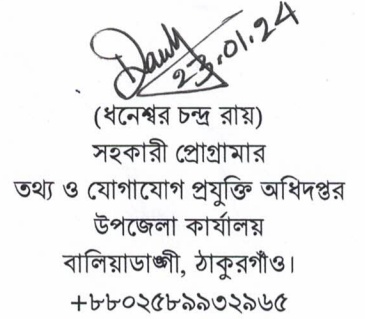 23.01.24
(ধনেশ্বর চন্দ্র রায়)
সহকারী প্রোগ্রামার
তথ্য ও যোগাযোগ প্রযুক্তি অধিদপ্তর
উপজেলা কার্যালয়
বালিয়াডাঙ্গী, ঠাকুরগাঁও।
+৮৮০২৫৮৯৯৩২৯৬৫